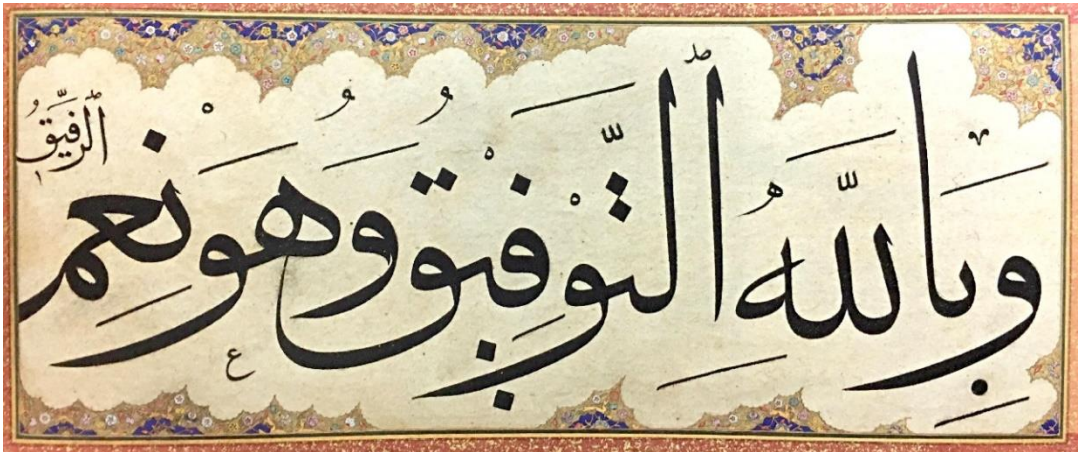 وَبِاللَّهِ التَّوْفِيقُ وَهُوَ نِعْمَ الرَّفِيقُ